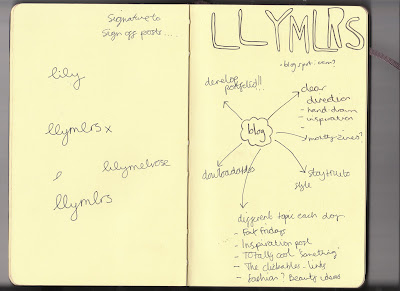 Signature to
Sign off posts....
lily
llymlrs x
lilymelrose
llymlrs
LLYMLRS
-blogspot.com?
develop
portfolio!!
clear
direction
- hand-drawn
- inspiration
-
/ monthly zines?
blog
downloadables
stay true to
style
different topic each day
- Fat fridays
- Inspiration post
- Totally cool 'something'
- The clickables - links
- fashion? Beauty ideas